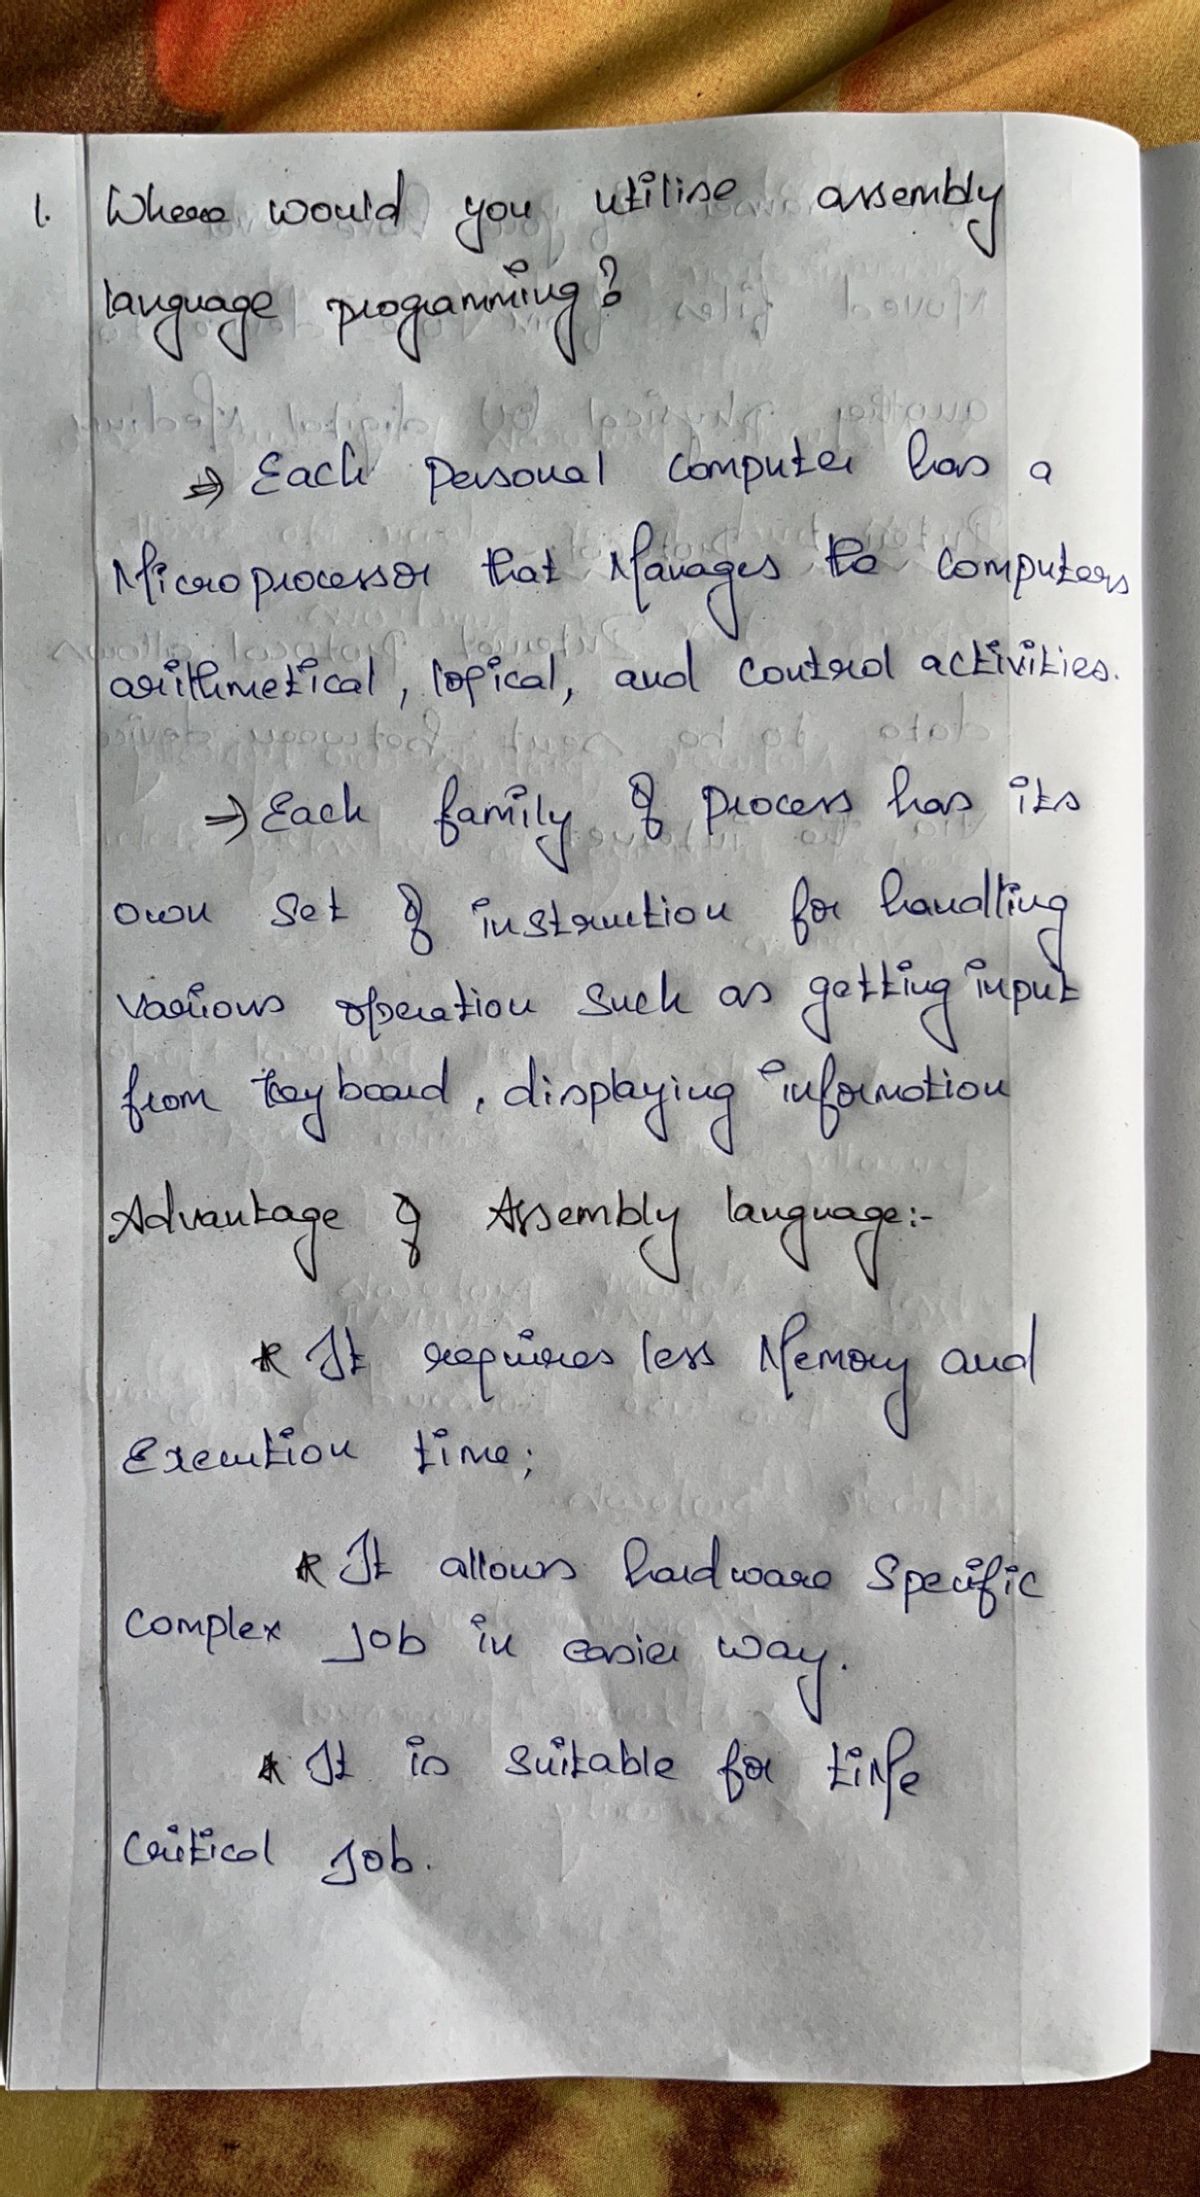 1. Where would you utilise assembly
language programming?
⇒ Each personal computer has a
Microprocessor that Manages the computers
arithmetical, logical, and control activities.
⇒ Each family of process has its
own set of instruction for handling
various operation such as getting input
from keyboard, displaying information
Advantage of Assembly language:-
* It requires less Memory and
Execution time;
* It allows hardware specific
complex job in easier way.
* It is suitable for time
critical job.